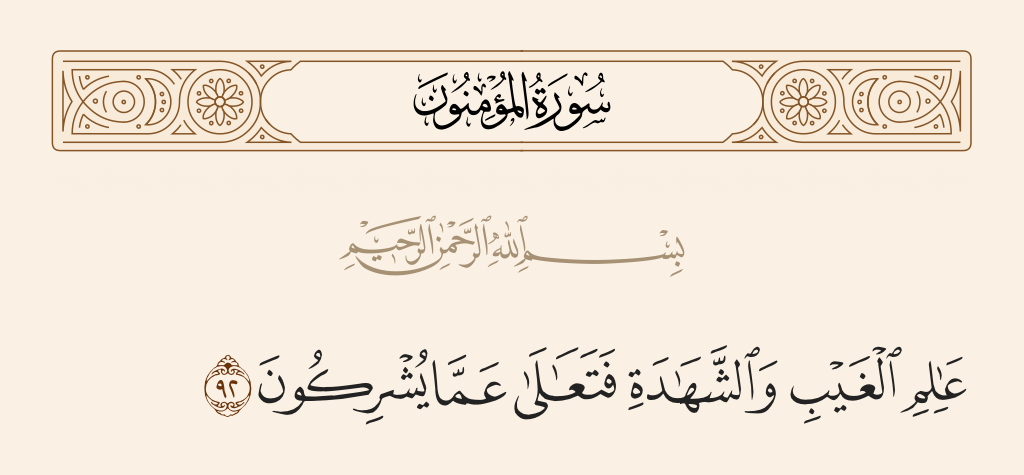 سُورَةُ المُؤْمِنُونَ
بِسْمِ ٱللَّهِ ٱلرَّحْمَٰنِ ٱلرَّحِيمِ
عَٰلِمِ ٱلْغَيْبِ وَٱلشَّهَٰدَةِ فَتَعَٰلَىٰ عَمَّا يُشْرِكُونَ ٩٢